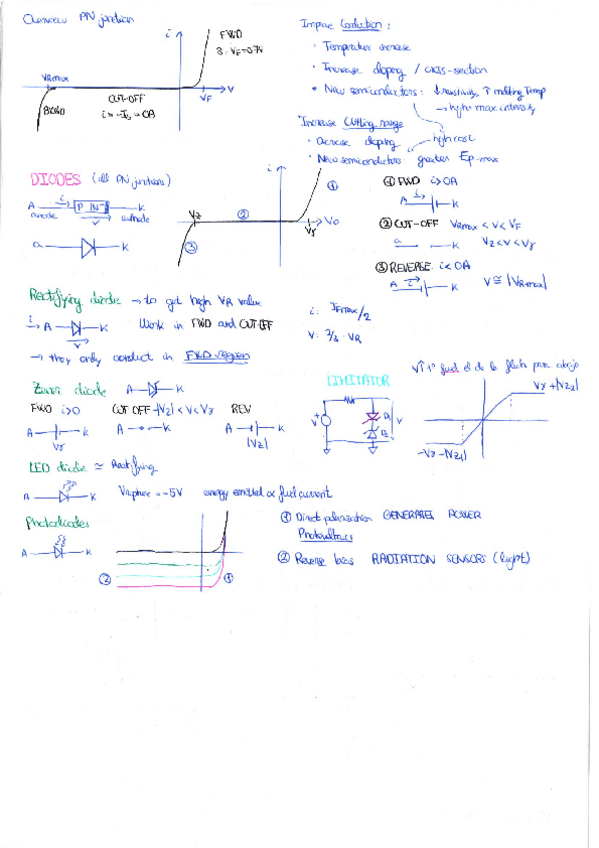 Overview PN junction
i
FWD
Si: VF=0.7V
VRmax
VF
V
BKWD
CUT-OFF
i = -Is ≈ 0A
Improve Conduction:
· Temperature increase
· Increase doping / cross-section
· New semiconductors: ↓ resistivity, ↑ melting Temp
→ higher max intensity
Increase Cutting range
· Decrease doping
high cost
· New semiconductors greater Ep-max
DIODES (all PN junctions)
A i P N K
anode V cathode
a K
i
Vz
②
①
③
Vγ
VD
① FWD i>0A
A i K
② CUT-OFF VRmax < V < VF
a K Vz<V<Vγ
③ REVERSE i<0A
A i K V ≅ |VRmax|
Rectifying diode → to get high VR value
i A K Work in FWD and CUT OFF
V
→ they only conduct in FWD region
i: IFmax/2
V: 2/3 · VR
Zener diode A K
FWD i>0 CUT OFF -|Vz|<V<Vγ REV
A K A K A K
Vγ |Vz|
LIMITATOR
V
D1
D2
V
Vγ+|Vz2|
-Vγ-|Vz1|
LED diode ≃ Rectifying
A K VRmax = -5V energy emitted ∝ fwd current
Photodiodes
A K
②
①
① Direct polarization GENERATES POWER
Photovoltaics
② Reverse bias RADIATION SENSORS (light)